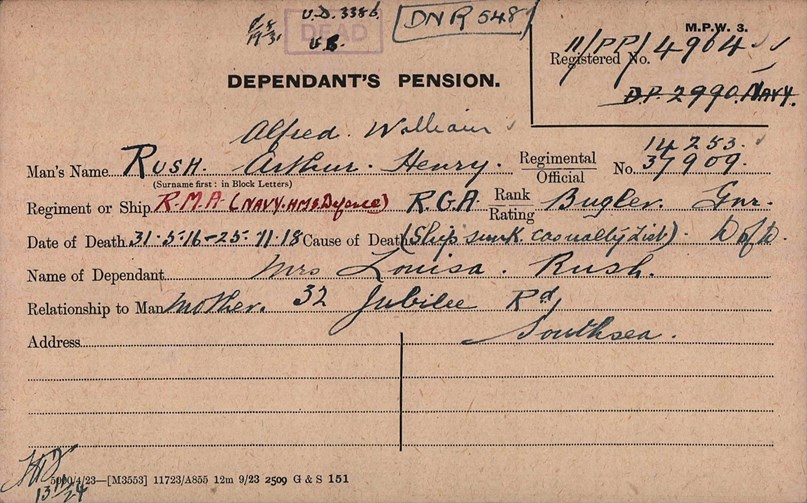 U.D. 3386
DNR 548
DEAD
M.P.W. 3.
11/PP/4964
Registered No.
D.P. 2990. NAVY.
DEPENDANT'S PENSION.
Alfred. William
14253.
Man's Name RUSH. Arthur. Henry. Regimental Official No. 37909.
(Surname first: in Block Letters)
Regiment or Ship R.M.A. (NAVY. HMS Defence) R.G.A. Rank Rating Bugler. Gnr.
Date of Death 31-5-16-25-11-18 Cause of Death (Ship sunk. casualty List). D of D.
Name of Dependant Mrs Louisa. Rush.
Relationship to Man Mother. 32 Jubilee Rd
Address Southsea.
5000/4/23—[M3553] 11723/A855 12m 9/23 2509 G & S 151